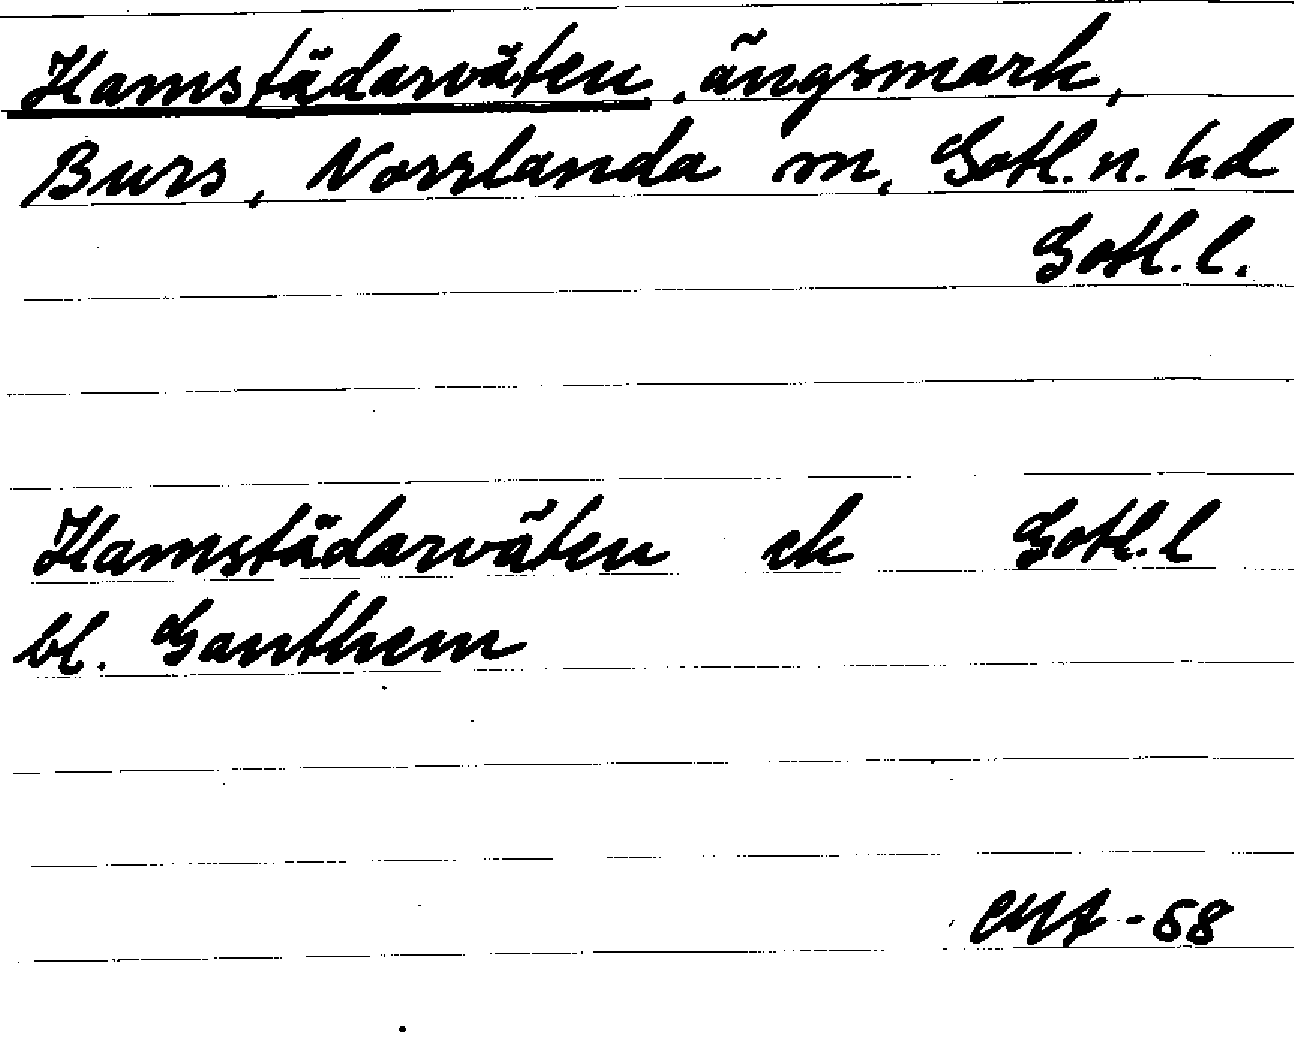 Hamstädarväten, ängsmark,
Burs, Norrlanda sn, Gotl. n. hd
Gotl. l.
Hamstädarväten ek Gotl. l
bl. Ganthem
-58